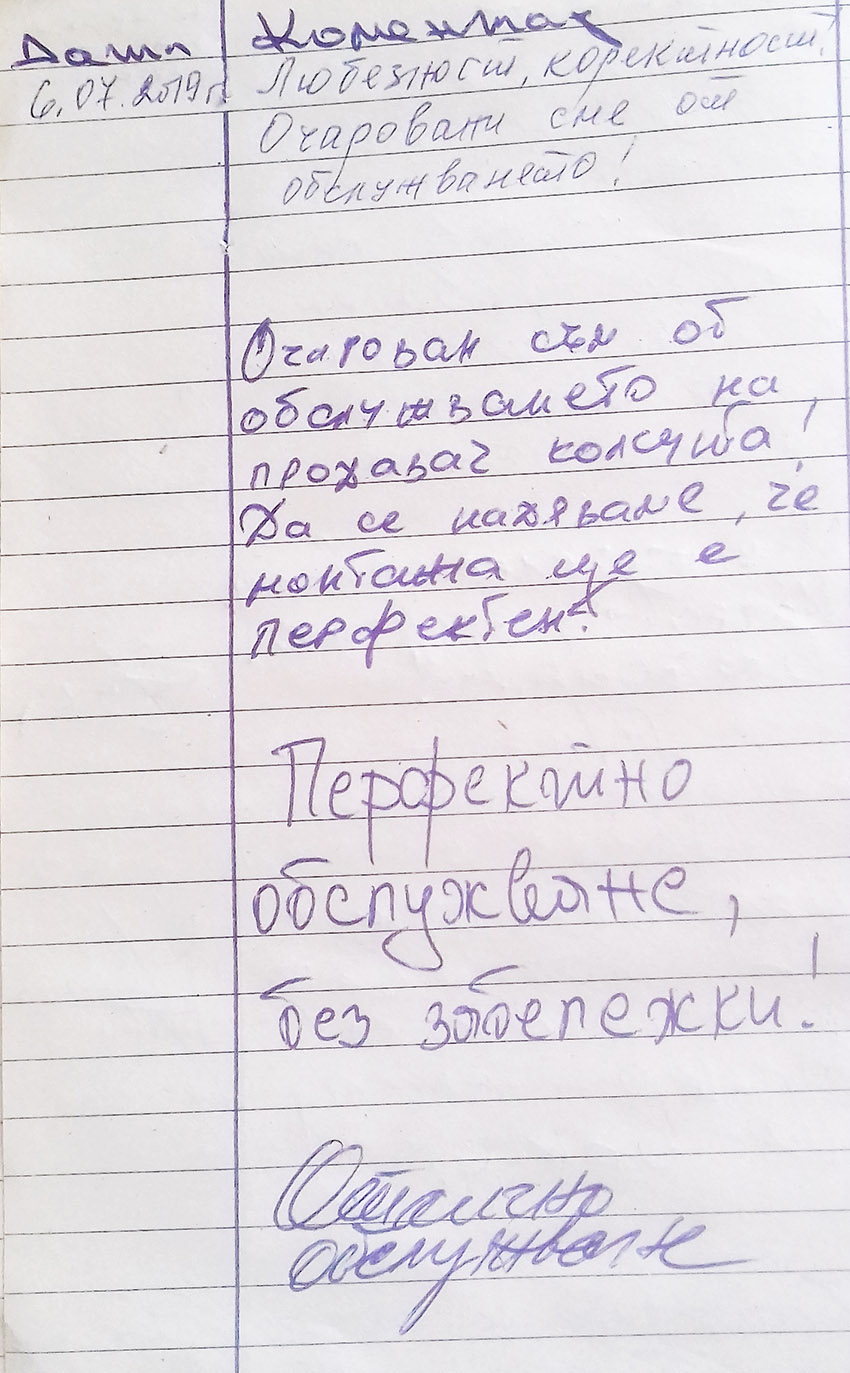 Дата Коментар
6.07.2019г. Любезност, коректност!
Очаровани сме от
обслужването!
Очарован съм об
обслужването на
продавач консулта!
Да се надяваме, че
монтажа ще е
перфектен!
Перфектно
обслужване,
без забележки!
Отлично
обслужване